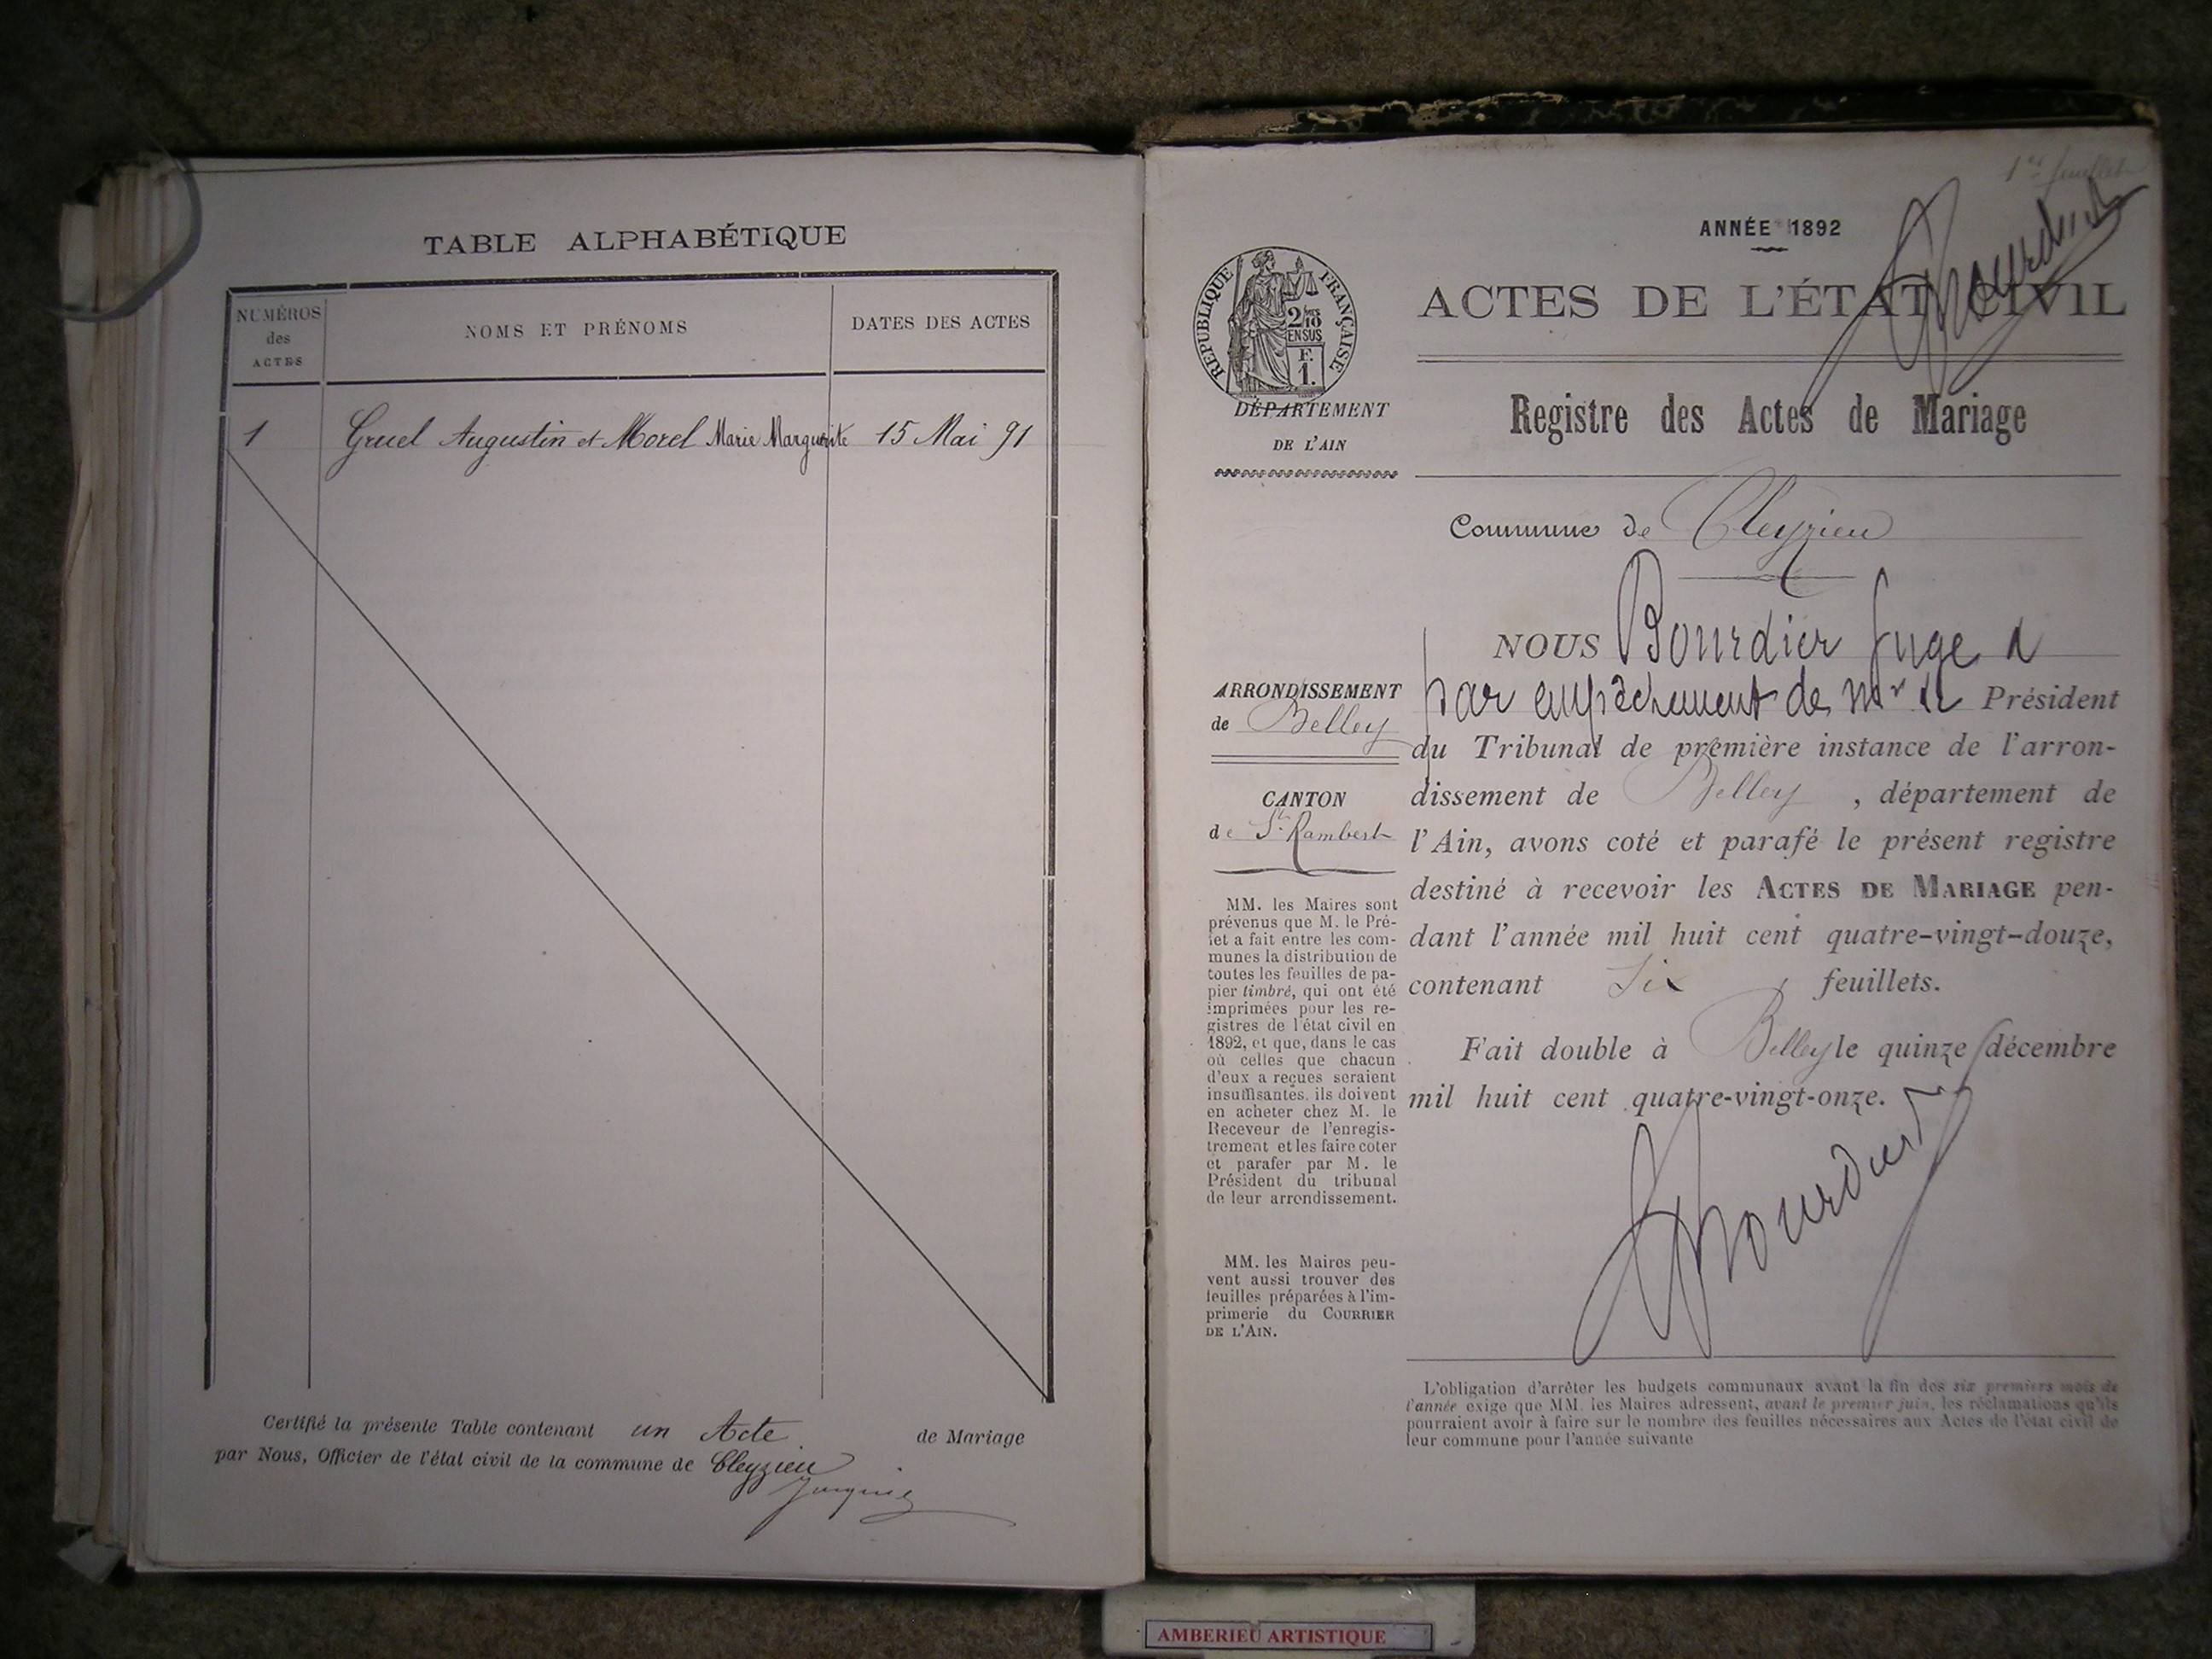 TABLE ALPHABÉTIQUE
NUMÉROS
des
ACTES
NOMS ET PRÉNOMS
DATES DES ACTES
1 Gruel Augustin et Morel Marie Marguerite 15 Mai 91
Certifié la présente Table contenant un Acte de Mariage
par Nous, Officier de l'état civil de la commune de Cleyzieu
1er feuillet
Bourdier
ANNÉE 1892
ACTES DE L'ÉTAT CIVIL
RÉPUBLIQUE FRANÇAISE
2/10
EN SUS
F.
1.
DÉPARTEMENT
DE L'AIN
Registre des Actes de Mariage
Commune de Cleyzieu
ARRONDISSEMENT
de Belley
CANTON
de St Rambert
MM. les Maires sont
prévenus que M. le Pré-
fet a fait entre les com-
munes la distribution de
toutes les feuilles de pa-
pier timbré, qui ont été
imprimées pour les re-
gistres de l'état civil en
1892, et que, dans le cas
où celles que chacun
d'eux a reçues seraient
insuffisantes, ils doivent
en acheter chez M. le
Receveur de l'enregis-
trement et les faire coter
et parafer par M. le
Président du tribunal
de leur arrondissement.
MM. les Maires peu-
vent aussi trouver des
feuilles préparées à l'im-
primerie du COURRIER
DE L'AIN.
NOUS Bourdier Juge
par empêchement de Mr le Président
du Tribunal de première instance de l'arron-
dissement de Belley, département de
l'Ain, avons coté et parafé le présent registre
destiné à recevoir les ACTES DE MARIAGE pen-
dant l'année mil huit cent quatre-vingt-douze,
contenant Six feuillets.
Fait double à Belley le quinze décembre
mil huit cent quatre-vingt-onze.
Bourdier
L'obligation d'arrêter les budgets communaux avant la fin des six premiers mois de
l'année exige que MM. les Maires adressent, avant le premier juin, les réclamations qu'ils
pourraient avoir à faire sur le nombre des feuilles nécessaires aux Actes de l'état civil de
leur commune pour l'année suivante
AMBERIEU ARTISTIQUE